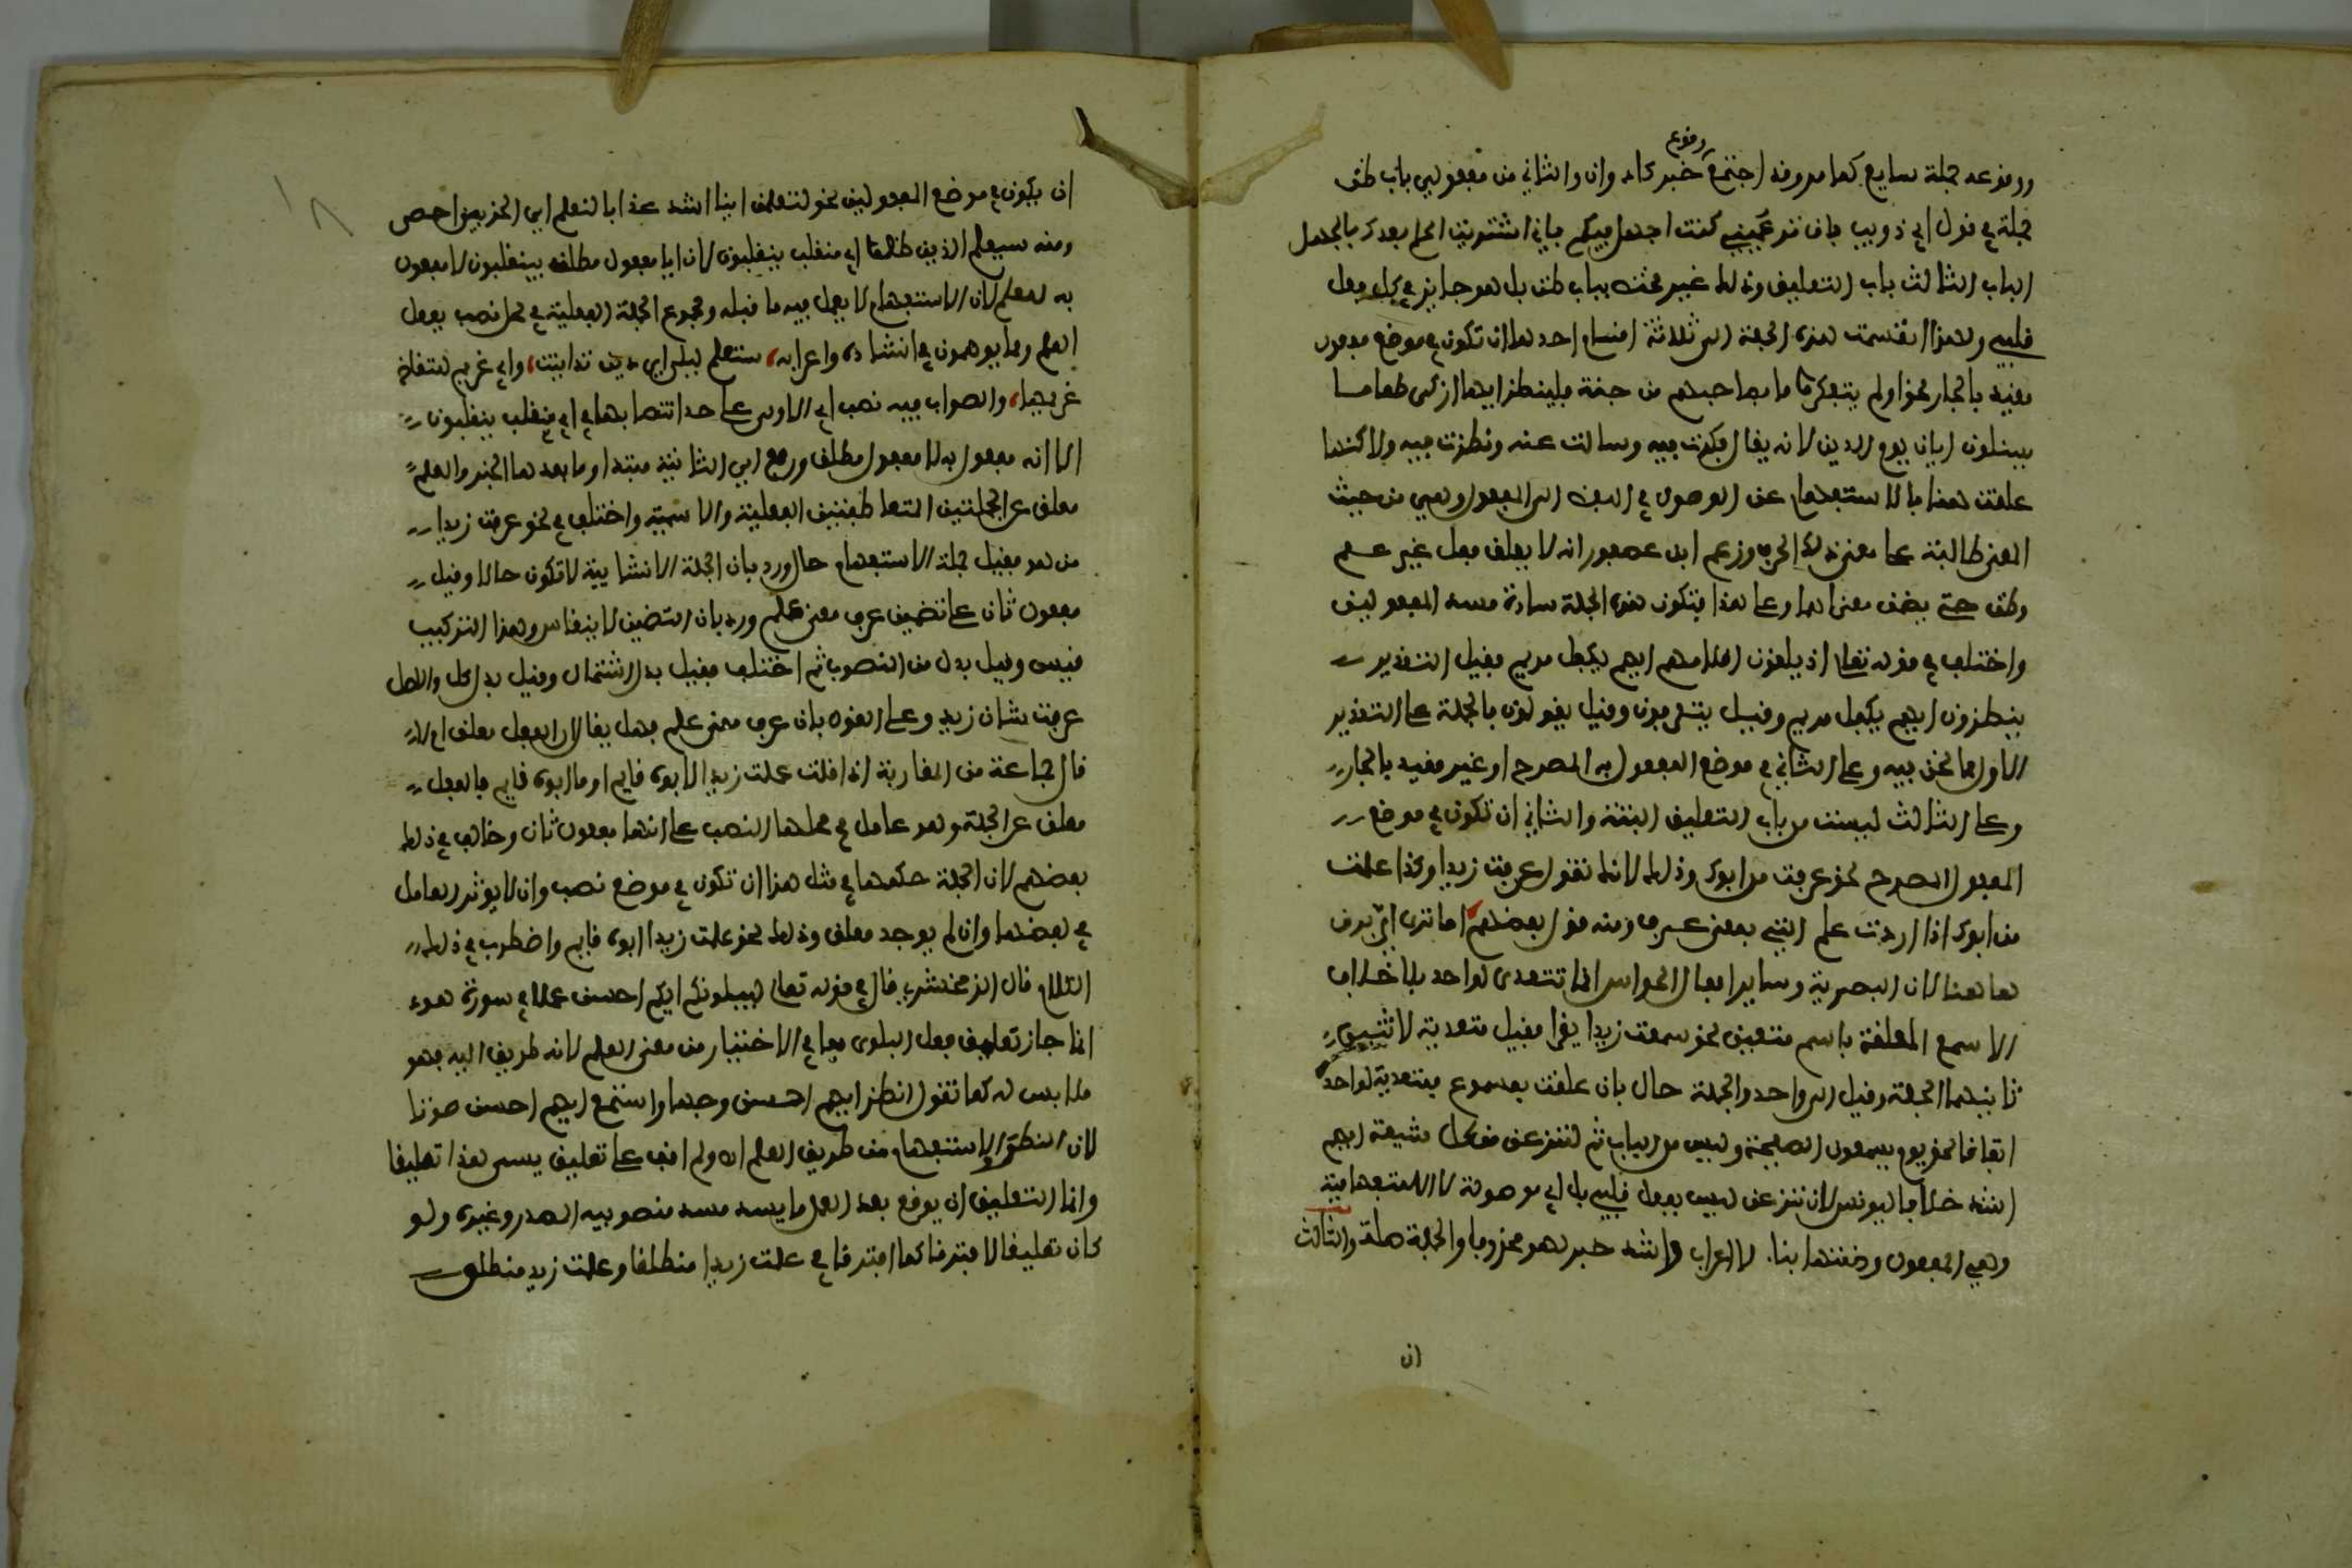 وقوع
ووقوعه جملة سايغ كما مر وقد اجتمع خبر كان وان والثاني من مفعولي باب ظن
جملة في قول ابي ذويب فان تزعميني كنت اجهل فيكم فاني اشتريت الحلم بعدك بالجهل
الباب الثالث باب التعليق وذلك غير مختص بباب ظن بل هو جايز في كل فعل
قلبي ولهذا انقسمت هذه الجملة الى ثلاثة اقسام احدها ان تكون في موضع مفعول
مقيد بالجار نحو اولم يتفكروا ما بصاحبهم من جنة فلينظر ايها ازكى طعاما
يسئلون ايان يوم الدين لانه يقال فكرت فيه وسالت عنه ونظرت فيه ولاكنها
علقت هنا بالاستفهام عن الوصول في اللفظ الى المفعول وهي من حيث
المعنى طالبة على معنى ذلك الحرف وزعم ابن عصفور انه لا يعلق فعل غير علم
وظن حتى يضمن معناهما وعلى هذا فتكون هذه الجملة سادة مسد المفعولين
واختلف في قوله تعالى اذ يلقون اقلامهم ايهم يكفل مريم فقيل التقدير
ينظرون ايهم يكفل مريم وقيل يتعرفون وقيل يقولون فالجملة على التقدير
الاول مما نحن فيه وعلى الثاني في موضع المفعول به المصرح او غير مقيد بالجار
وعلى الثالث ليست من باب التعليق البتة والثاني ان تكون في موضع
المفعول المصرح نحو عرفت من ابوك وذلك لانك تقول عرفت زيدا وكذا علمت
من ابوك اذا اردت علم الذي بمعنى عرف ومنه قول بعضهم اما ترى اي برق
ها هنا لان البصرية وساير افعال الحواس انما تتعدى لواحد بلا خلاف
الا سمع المعلقة باسم متعين نحو سمعت زيدا يقرا فقيل متعدية لاثنين
ثانيهما الجملة وقيل الى واحد والجملة حال فان علقت بمسموع فمتعدية لواحد
اتفاقا نحو يوم يسمعون الصيحة وليس من الباب ثم لننزعن من كل شيعة ايهم
اشد خلافا ليونس لان ننزعن ليس بفعل قلبي بل اي موصولة لا استفهامية
وهي المفعول وضمتها بنا لا اعراب واشد خبر لهو محذوفا والجملة صلة والثالث
ان
ان يكون في موضع المفعولين نحو لتعلمن اينا اشد عذابا لنعلم اي الحزبين احصى
ومنه سيعلم الذين ظلموا اي منقلب ينقلبون لان ايا مفعول مطلق لينقلبون لا مفعول
به ليعلم لان الاستفهام لا يعمل فيه ما قبله ومجموع الجملة الفعلية في محل نصب بفعل
العلم ومما يوهمون في انشاده واعرابه ستعلم ليلى اي دين تداينت واي غريم للتقاضي
غريمها والصواب فيه نصب اي الاولى على حد انتصابها في اي منقلب ينقلبون
الا انه مفعول به لا مفعول مطلق ورفع اي الثانية مبتدا وما بعدها الخبر والعلم
معلق عن الجملتين المتعاطفتين الفعلية والاسمية واختلف في نحو عرفت زيدا
من هو فقيل جملة الاستفهام حال ورد بان الجملة الانشايية لا تكون حالا وقيل
مفعول ثان على تضمين عرف معنى علم ورد بان التضمين لا ينقاس وهذا التركيب
قيس وقيل بدل من المنصوب ثم اختلف فقيل بدل اشتمال وقيل بدل كل والاصل
عرفت شان زيد وعلى القول بان عرف بمعنى علم فهل يقال ان الفعل معلق ام لا
قال جماعة من المغاربة اذا قلت علمت زيدا لابوه قايم او ما ابوه قايم فالفعل
معلق عن الجملة وهو عامل في محلها النصب على انها مفعول ثان وخالف في ذلك
بعضهم لان الجملة حكمها في مثل هذا ان تكون في موضع نصب وان لا يوثر العامل
في لفظها وان لم يوجد معلق وذلك نحو علمت زيدا ابوه قايم واضطرب في ذلك
كلام قال الزمخشري فقال في قوله تعالى ليبلوكم ايكم احسن عملا في سورة هود
انما جاز تعليق فعل البلوى لما في الاختبار من معنى العلم لانه طريق اليه فهو
ملابس له كما تقول انظر ايهم احسن وجها واستمع ايهم احسن صوتا
لان النظر والاستفهام من طريق العلم اه ولم اقف على تعليق يسمى هذا تعليقا
وانما التعليق ان يوقع بعد الفعل ما يسد مسد منصوبيه المصدر وغيره ولو
كان تعليقا لافترقا كما افترقا في علمت زيدا منطلقا وعلمت زيد منطلق